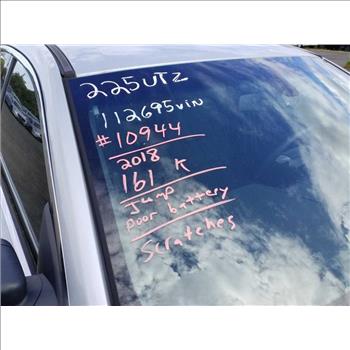 225UTZ
112695VIN
#10944
2018
161 K
Jump
poor battery
Scratches